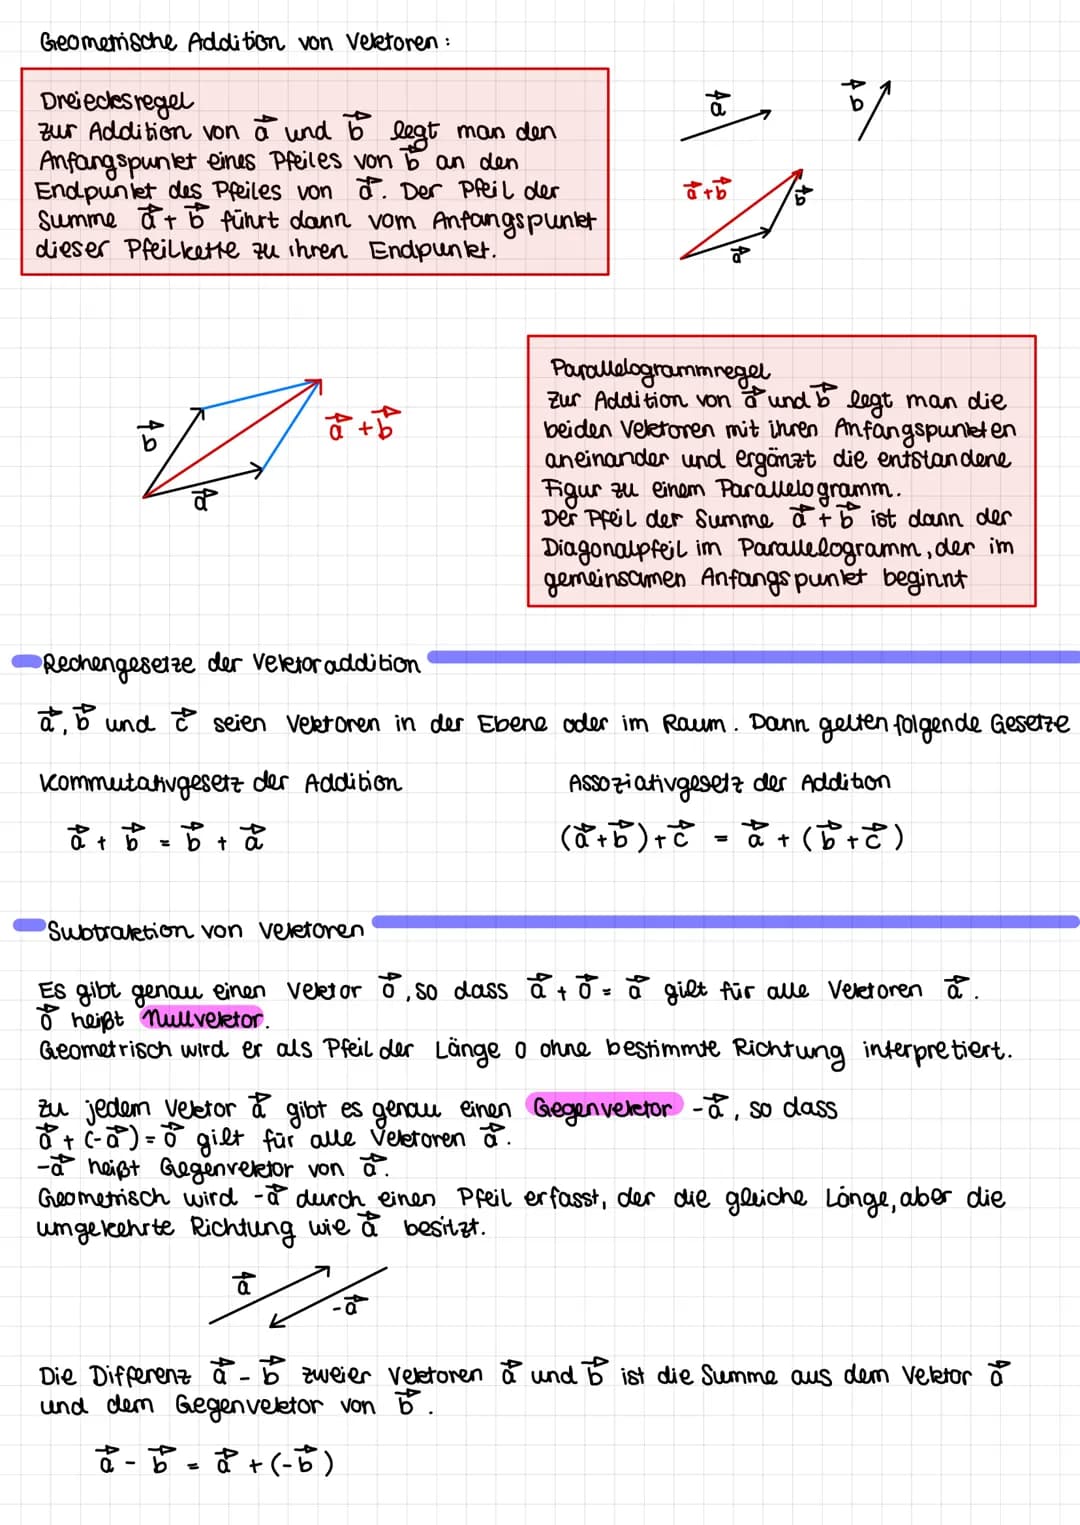 Geometrische Addition von Vektoren:
Dreiecksregel
zur Addition von a⃗ und b⃗ legt man den
Anfangspunkt eines Pfeiles von b⃗ an den
Endpunkt des Pfeiles von a⃗. Der Pfeil der
Summe a⃗ + b⃗ führt dann vom Anfangspunkt
dieser Pfeilkette zu ihren Endpunkt.
a⃗
b⃗
a⃗+b⃗
b⃗
a⃗
b⃗
a⃗
a⃗ + b⃗
Parallelogrammregel
Zur Addition von a⃗ und b⃗ legt man die
beiden Vektoren mit ihren Anfangspunkten
aneinander und ergänzt die entstandene
Figur zu einem Parallelogramm.
Der Pfeil der Summe a⃗ + b⃗ ist dann der
Diagonalpfeil im Parallelogramm, der im
gemeinsamen Anfangspunkt beginnt
Rechengesetze der Vektoraddition
a⃗, b⃗ und c⃗ seien Vektoren in der Ebene oder im Raum. Dann gelten folgende Gesetze
Kommutativgesetz der Addition
a⃗ + b⃗ = b⃗ + a⃗
Assoziativgesetz der Addition
(a⃗+b⃗)+c⃗ = a⃗ + (b⃗+c⃗)
Subtraktion von Vektoren
Es gibt genau einen Vektor o⃗, so dass a⃗ + o⃗ = a⃗ gilt für alle Vektoren a⃗.
o⃗ heißt Nullvektor.
Geometrisch wird er als Pfeil der Länge 0 ohne bestimmte Richtung interpretiert.
zu jedem Vektor a⃗ gibt es genau einen Gegenvektor -a⃗, so dass
a⃗ + (-a⃗) = o⃗ gilt für alle Vektoren a⃗.
-a⃗ heißt Gegenvektor von a⃗.
Geometrisch wird -a⃗ durch einen Pfeil erfasst, der die gleiche Länge, aber die
umgekehrte Richtung wie a⃗ besitzt.
a⃗
-a⃗
Die Differenz a⃗ - b⃗ zweier Vektoren a⃗ und b⃗ ist die Summe aus dem Vektor a⃗
und dem Gegenvektor von b⃗.
a⃗ - b⃗ = a⃗ + (-b⃗)